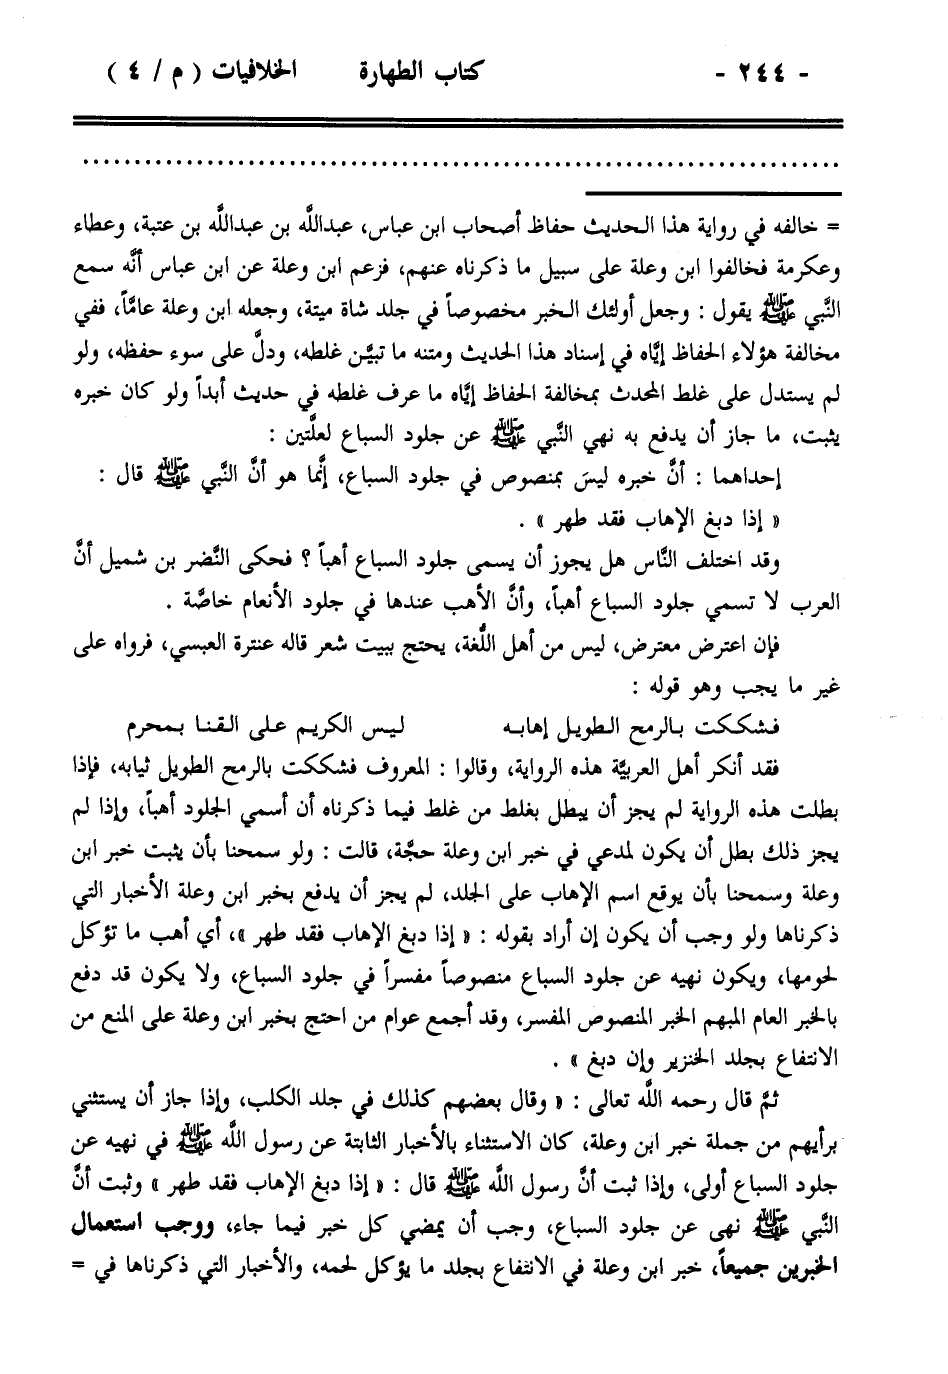 - ٢٤٤ - كتاب الطهارة الخلافيات ( م / ٤ )
................................................................
= خالفه في رواية هذا الحديث حفاظ أصحاب ابن عباس، عبدالله بن عبدالله بن عتبة، وعطاء
وعكرمة فخالفوا ابن وعلة على سبيل ما ذكرناه عنهم، فزعم ابن وعلة عن ابن عباس أنَّه سمع
النَّبي ﷺ يقول : وجعل أولئك الخبر مخصوصاً في جلد شاة ميتة، وجعله ابن وعلة عامّاً، ففي
مخالفة هؤلاء الحفاظ إيَّاه في إسناد هذا الحديث ومتنه ما تبيَّن غلطه، ودلَّ على سوء حفظه، ولو
لم يستدل على غلط المحدث بمخالفة الحفاظ إيَّاه ما عرف غلطه في حديث أبداً ولو كان خبره
يثبت، ما جاز أن يدفع به نهي النَّبي ﷺ عن جلود السباع لعلَّتين :
إحداهما : أنَّ خبره ليسَ بمنصوص في جلود السباع، إنَّما هو أنَّ النَّبي ﷺ قال :
« إذا دبغ الإهاب فقد طهر » .
وقد اختلف النَّاس هل يجوز أن يسمى جلود السباع أهباً ؟ فحكى النَّضر بن شميل أنَّ
العرب لا تسمي جلود السباع أهباً، وأنَّ الأهب عندها في جلود الأنعام خاصَّة .
فإن اعترض معترض، ليس من أهل اللُّغة، يحتج ببيت شعر قاله عنترة العبسي، فرواه على
غير ما يجب وهو قوله :
فشككت بالرمح الطويل إهابه ليس الكريم على القنا بمحرم
فقد أنكر أهل العربيَّة هذه الرواية، وقالوا : المعروف فشككت بالرمح الطويل ثيابه، فإذا
بطلت هذه الرواية لم يجز أن يبطل بغلط من غلط فيما ذكرناه أن أسمي الجلود أهباً، وإذا لم
يجز ذلك بطل أن يكون لمدعي في خبر ابن وعلة حجَّة، قالت : ولو سمحنا بأن يثبت خبر ابن
وعلة وسمحنا بأن يوقع اسم الإهاب على الجلد، لم يجز أن يدفع بخبر ابن وعلة الأخبار التي
ذكرناها ولو وجب أن يكون إن أراد بقوله : « إذا دبغ الإهاب فقد طهر »، أي أهب ما تؤكل
لحومها، ويكون نهيه عن جلود السباع منصوصاً مفسراً في جلود السباع، ولا يكون قد دفع
بالخبر العام المبهم الخبر المنصوص المفسر، وقد أجمع عوام من احتج بخبر ابن وعلة على المنع من
الانتفاع بجلد الخنزير وإن دبغ » .
ثمَّ قال رحمه الله تعالى : « وقال بعضهم كذلك في جلد الكلب، وإذا جاز أن يستثني
برأيهم من جملة خبر ابن وعلة، كان الاستثناء بالأخبار الثابتة عن رسول الله ﷺ في نهيه عن
جلود السباع أولى، وإذا ثبت أنَّ رسول الله ﷺ قال : « إذا دبغ الإهاب فقد طهر » وثبت أنَّ
النَّبي ﷺ نهى عن جلود السباع، وجب أن يمضي كل خبر فيما جاء، ووجب استعمال
الخبرين جميعاً، خبر ابن وعلة في الانتفاع بجلد ما يؤكل لحمه، والأخبار التي ذكرناها في =